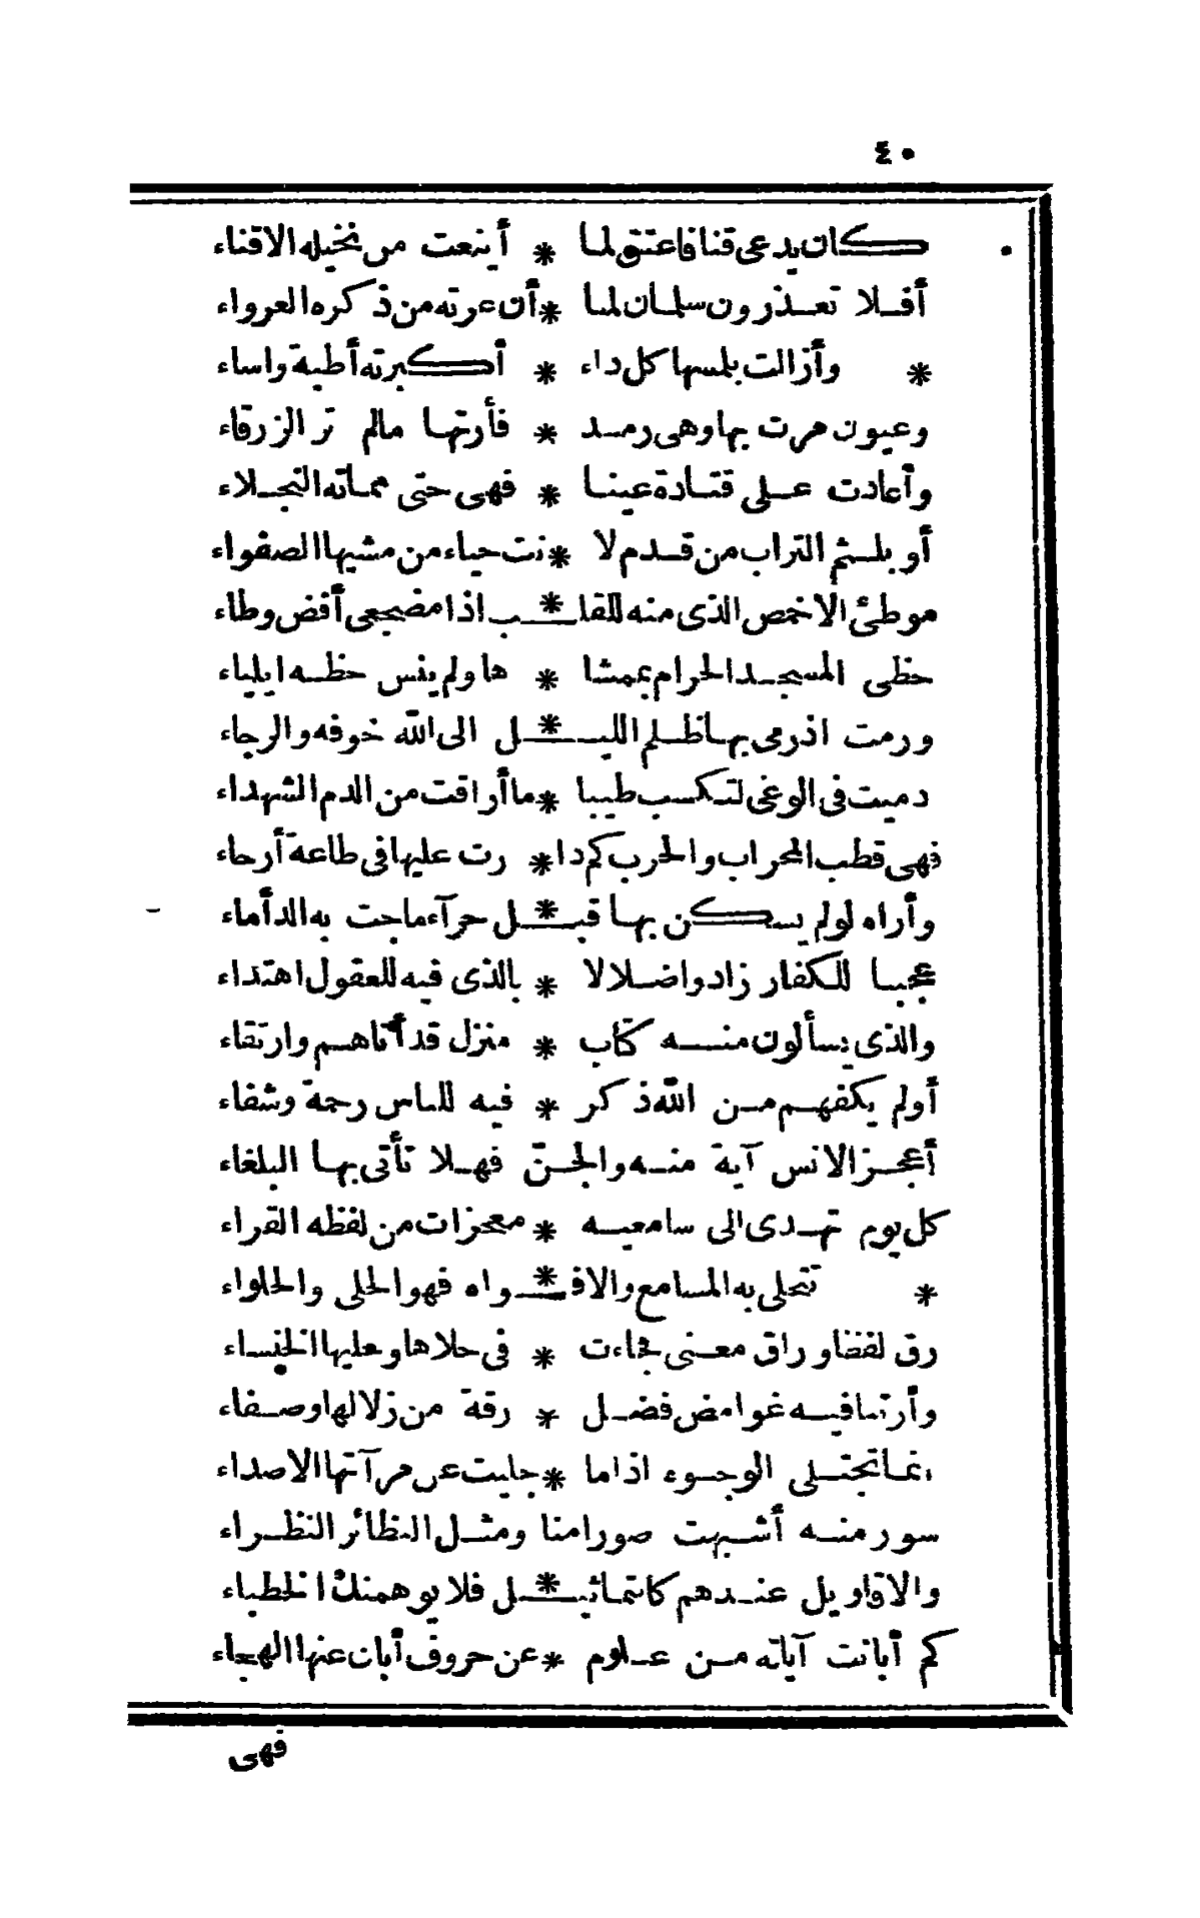 ٤٠
كان يدعى قنا فاعتق لما * أينعت من نخيله الاقناء
أفلا تعذرون سلمان لما * أن عرته من ذكره العرواء
* وأزالت بلمسها كل داء * أكبرته أطبة واساء
وعيون مرت بها وهى رمد * فأرتها مالم تر الزرقاء
وأعادت على قتادة عينا * فهى حتى مماته النجلاء
أو بلثم التراب من قدم لا * نت حياء من مشيها الصفواء
موطئ الاخمص الذى منه للقلـ * ـب اذا مضجعى أقض وطاء
حظى المسجد الحرام بممشا * ها ولم ينس حظه ايلياء
ورمت اذ رمى بها ظلم الليـ * ـل الى الله خوفه والرجاء
دميت فى الوغى لتكسب طيبا * ما أراقت من الدم الشهداء
فهى قطب المحراب والحرب كم دا * رت عليها فى طاعة أرحاء
وأراه لو لم يسكن بها قبـ * ـل حرآء ماجت به الدأماء
عجبا للكفار زادوا ضلالا * بالذى فيه للعقول اهتداء
والذى يسألون منه كتاب * منزل قد أتاهم وارتقاء
أولم يكفهم من الله ذكر * فيه للناس رحمة وشفاء
أعجز الانس آية منه والجنّ فهلا تأتى بها البلغاء
كل يوم تهدى الى سامعيه * معجزات من لفظه القراء
* تتحلى به المسامع والافـ * ـواه فهو الحلى والحلواء
رق لفظا وراق معنى فجاءت * فى حلاها وحليها الخنساء
وأرتنا فيه غوامض فضل * رقة من زلالها وصفاء
انما تجتلى الوجوه اذا ما * جليت عن مرآتها الاصداء
سور منه أشبهت صورا منا ومثل النظائر النظراء
والاقاويل عندهم كالتماثيـ * ـل فلا يوهمنك الخطباء
كم أبانت آياته من علوم * عن حروف أبان عنها الهجاء
فهى